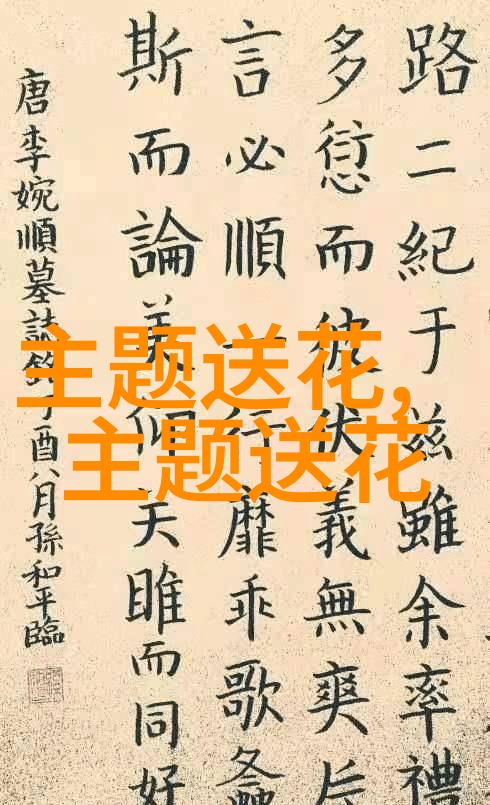 路二紀于兹雖余率禮
多愆而彼伏義無爽
言必順一行靡乖歌
斯而論美何睢而同好
唐李婉順墓誌銘丁酉八月孫和平臨
主题送花,
主题送花